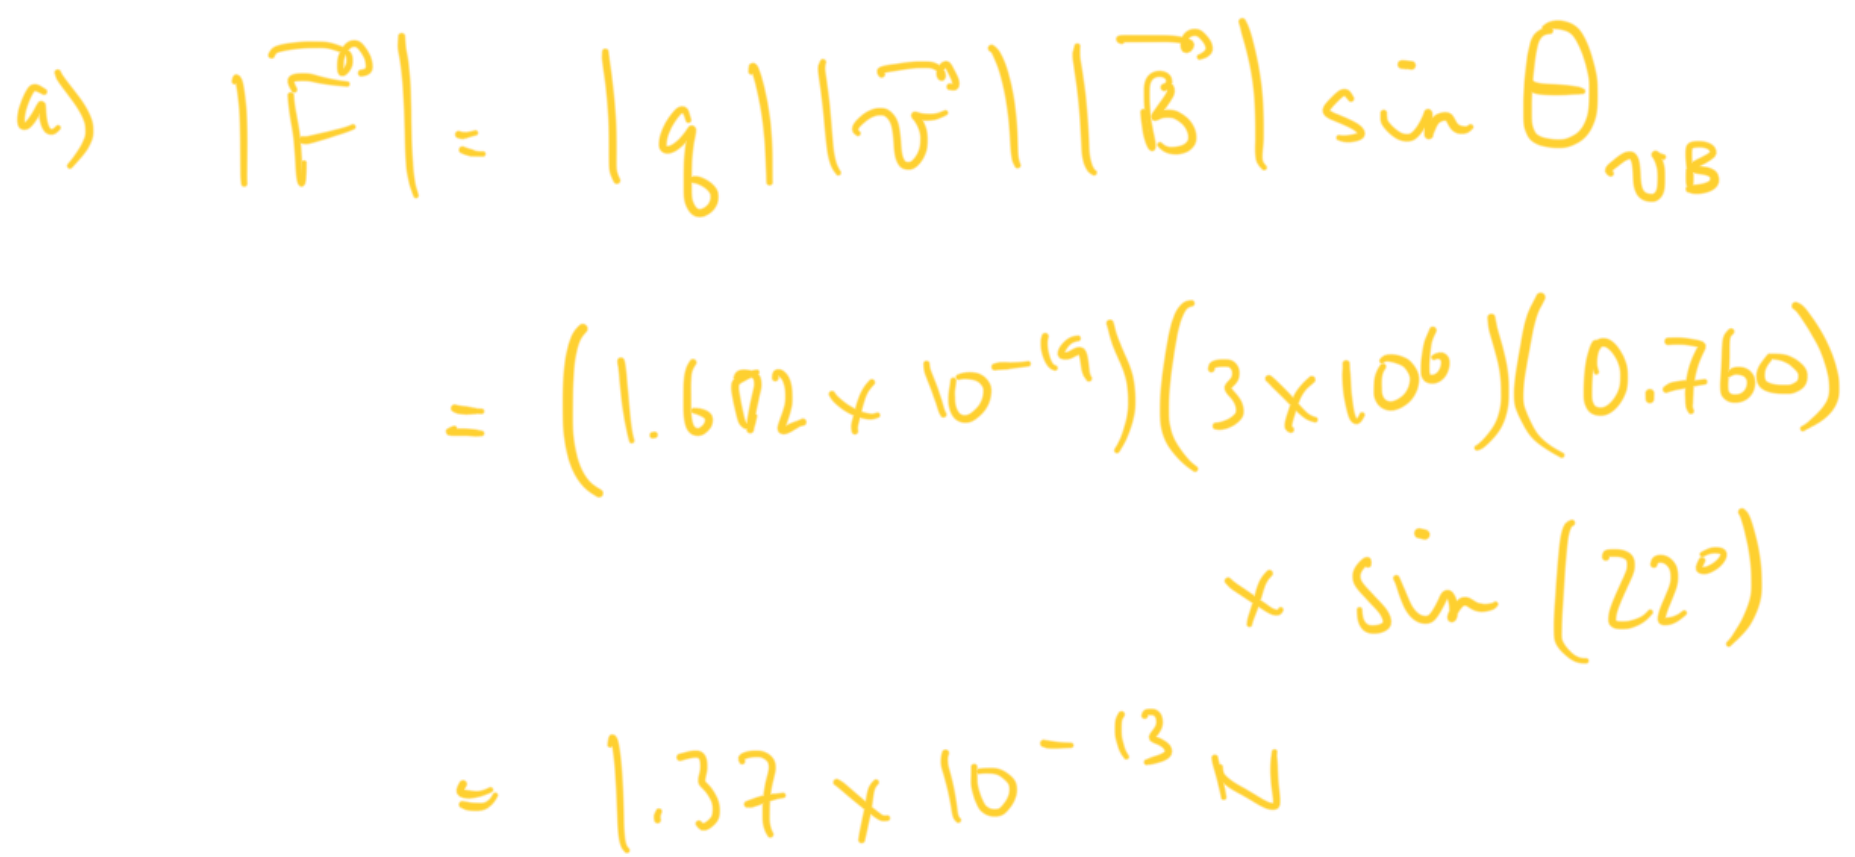 a) |F⃗| = |q||v⃗||B⃗| sin θ_vB
= (1.602 × 10⁻¹⁹)(3 × 10⁶)(0.760)
× sin (22°)
= 1.37 × 10⁻¹³ N